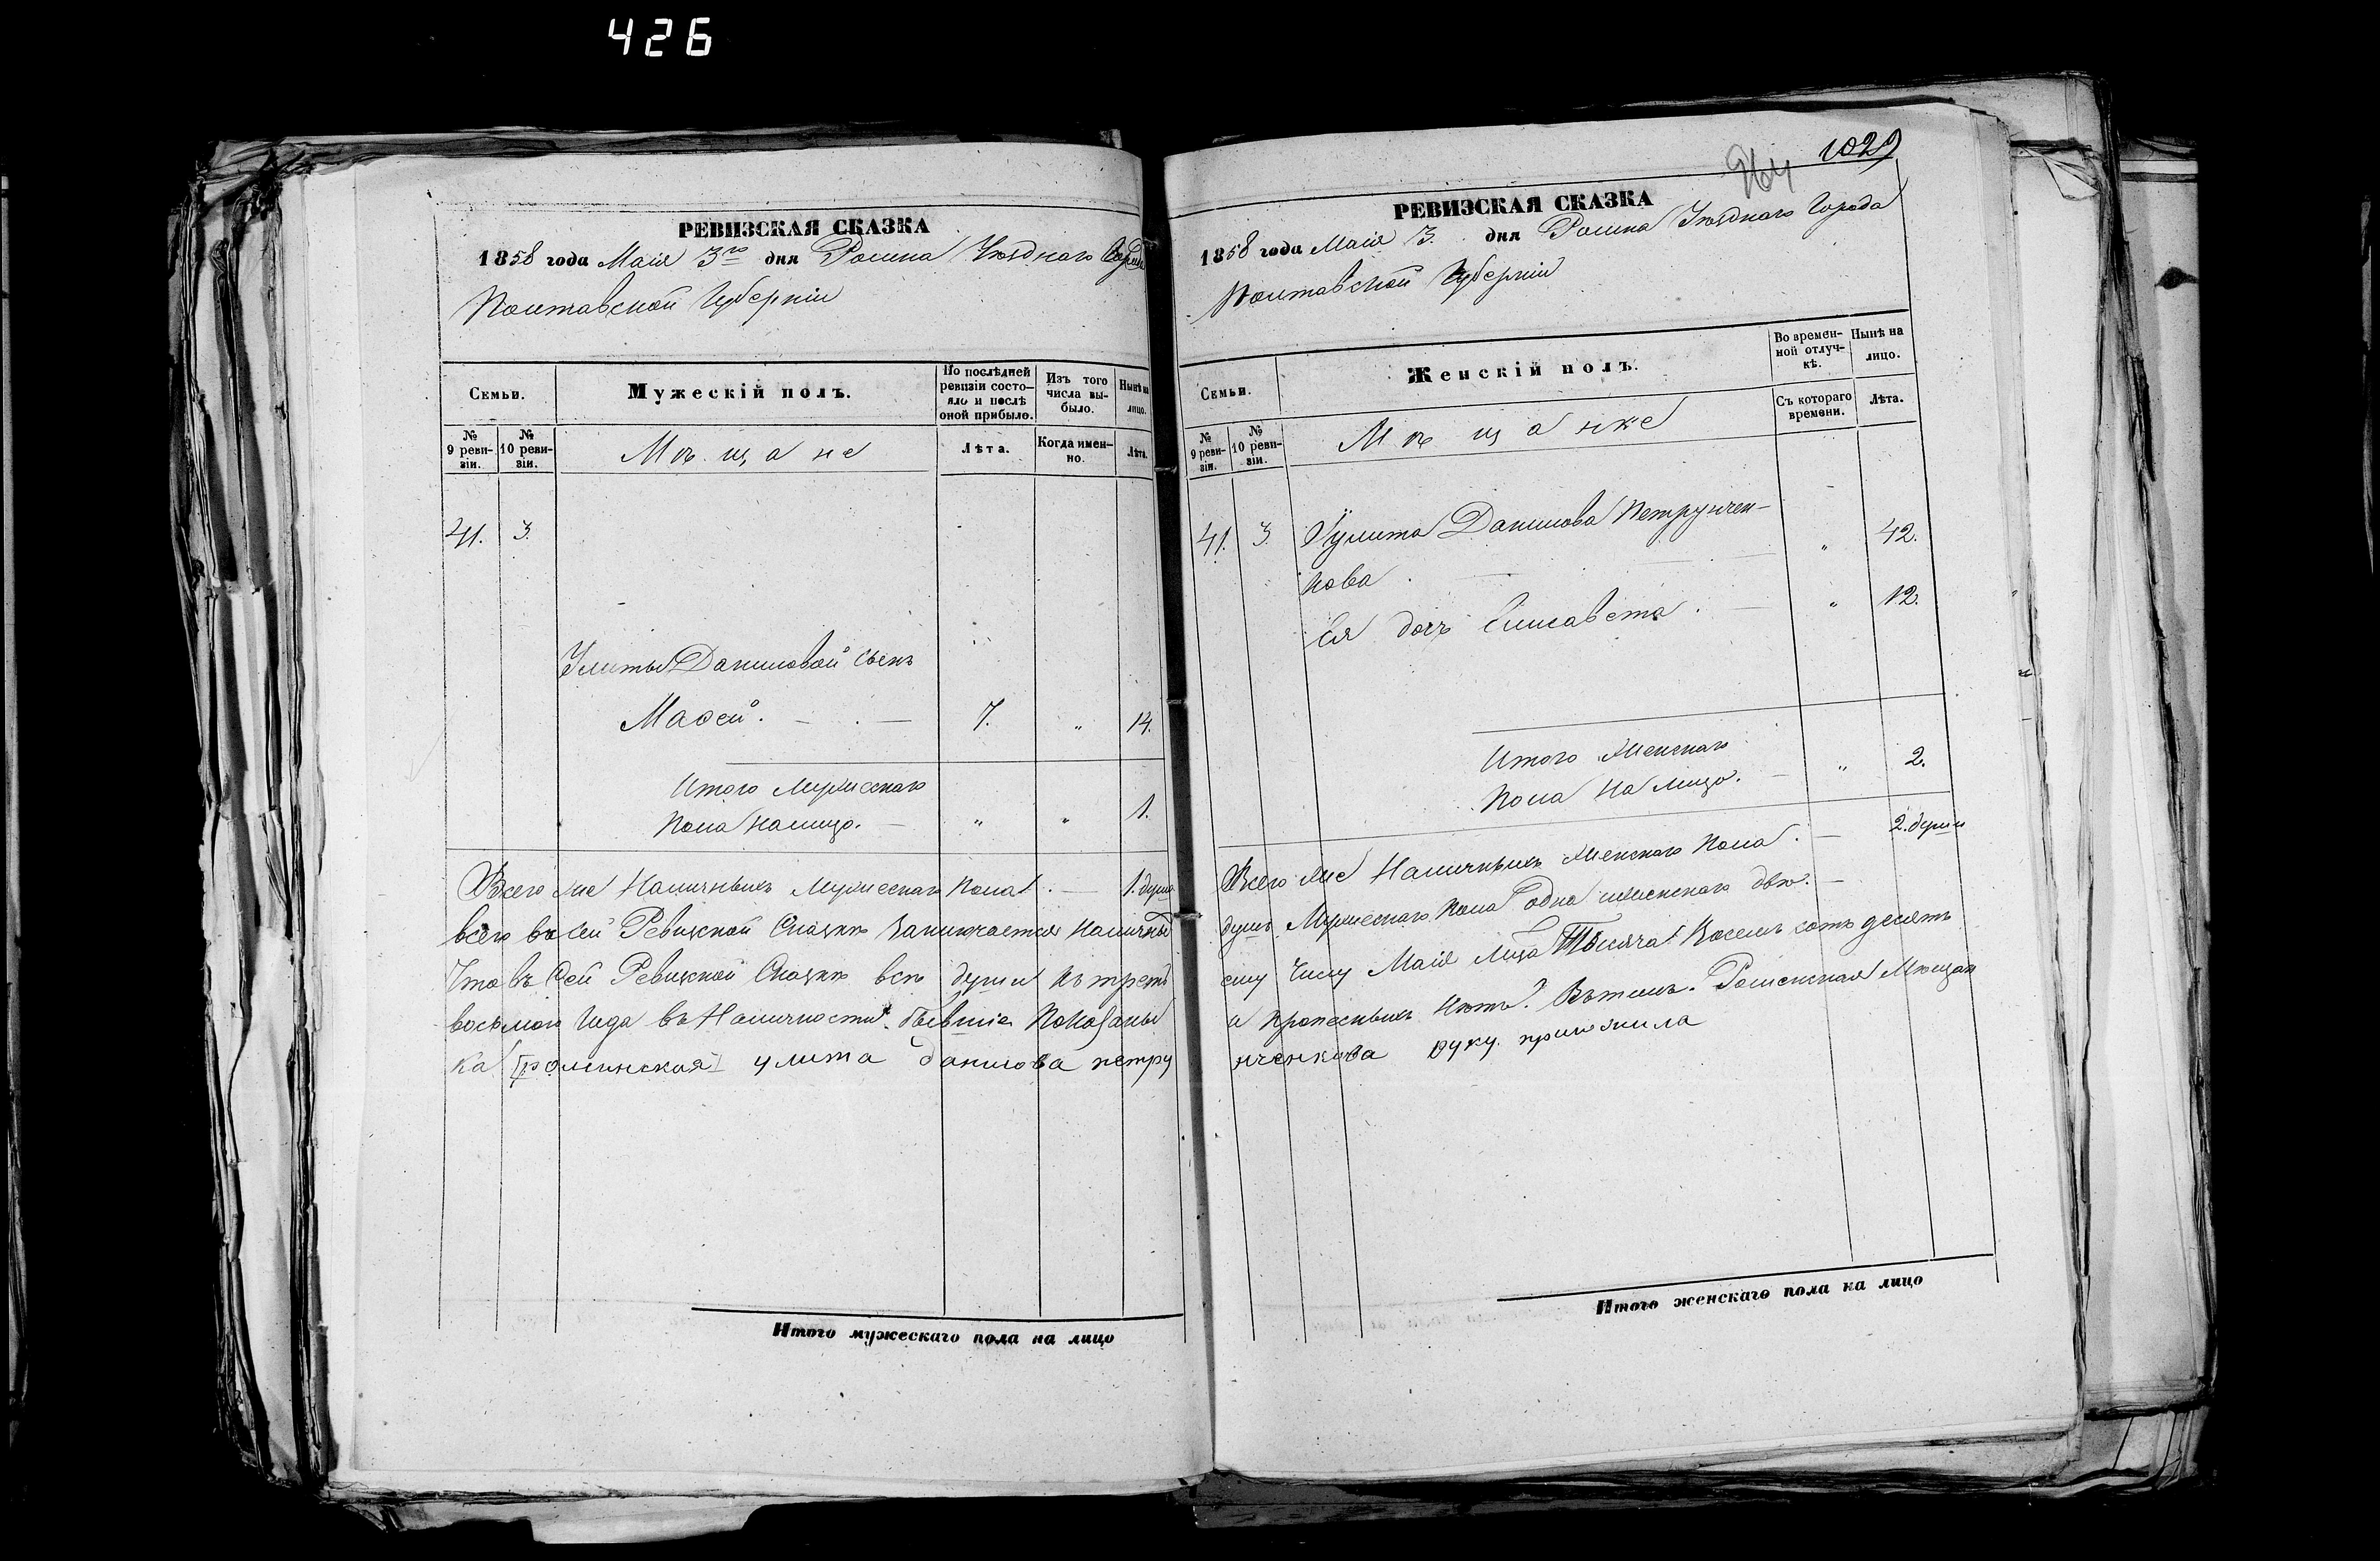 426
РЕВИЗСКАЯ СКАЗКА
1858 года Маія 3го дня Ромна Уѣзднаго Города
Полтавской Губерніи
Семьи.
Мужескій полъ.
По послѣдней ревизіи состояло и послѣ оной прибыло.
Изъ того числа выбыло.
Нынѣ на лицо.
№ 9 ревизіи.
№ 10 ревизіи.
Мѣщане
Лѣта.
Когда именно.
Лѣта.
41. 3.
Улиты Даниловой сынъ
Мαѳей. — . — 7. „ 14.
Итого Мужескаго
Пола налицо. — „ „ 1.
Всего же Наличныхъ Мужескаго Пола. — 1. душа
всего въ сей Ревизской Сказкѣ Заключается Наличны
Что въ Сей Ревизской Сказкѣ всѣ души къ третъ
восьмого Года въ Наличности бывшіе Показаны
ка роменская улита данилова петру
Итого мужескаго пола на лицо
264
1029
РЕВИЗСКАЯ СКАЗКА
1858 года Маія 3. дня Ромна Уѣзднаго Города
Полтавской Губерніи
Семьи.
Женскій полъ.
Во временной отлучкѣ.
Нынѣ на лицо.
№ 9 ревизіи.
№ 10 ревизіи.
Мѣщанке
Съ котораго времени.
Лѣта.
41. 3. Улита Данилова Петрунчен-
кова . — „ 42.
Ея дочь Елисавета. — „ 12.
Итого Женскаго
Пола На лицо. — „ 2.
Всего же Наличныхъ Женскаго Пола. — 2. души
душъ Мужескаго Пола одна женскаго двѣ. —
ему Числу Маія Лица Тысяча Восемь сотъ десятъ
а прописныхъ Нѣтъ. Въ томъ. Роменская Мѣщан
нченкова руку приложила
Итого женскаго пола на лицо